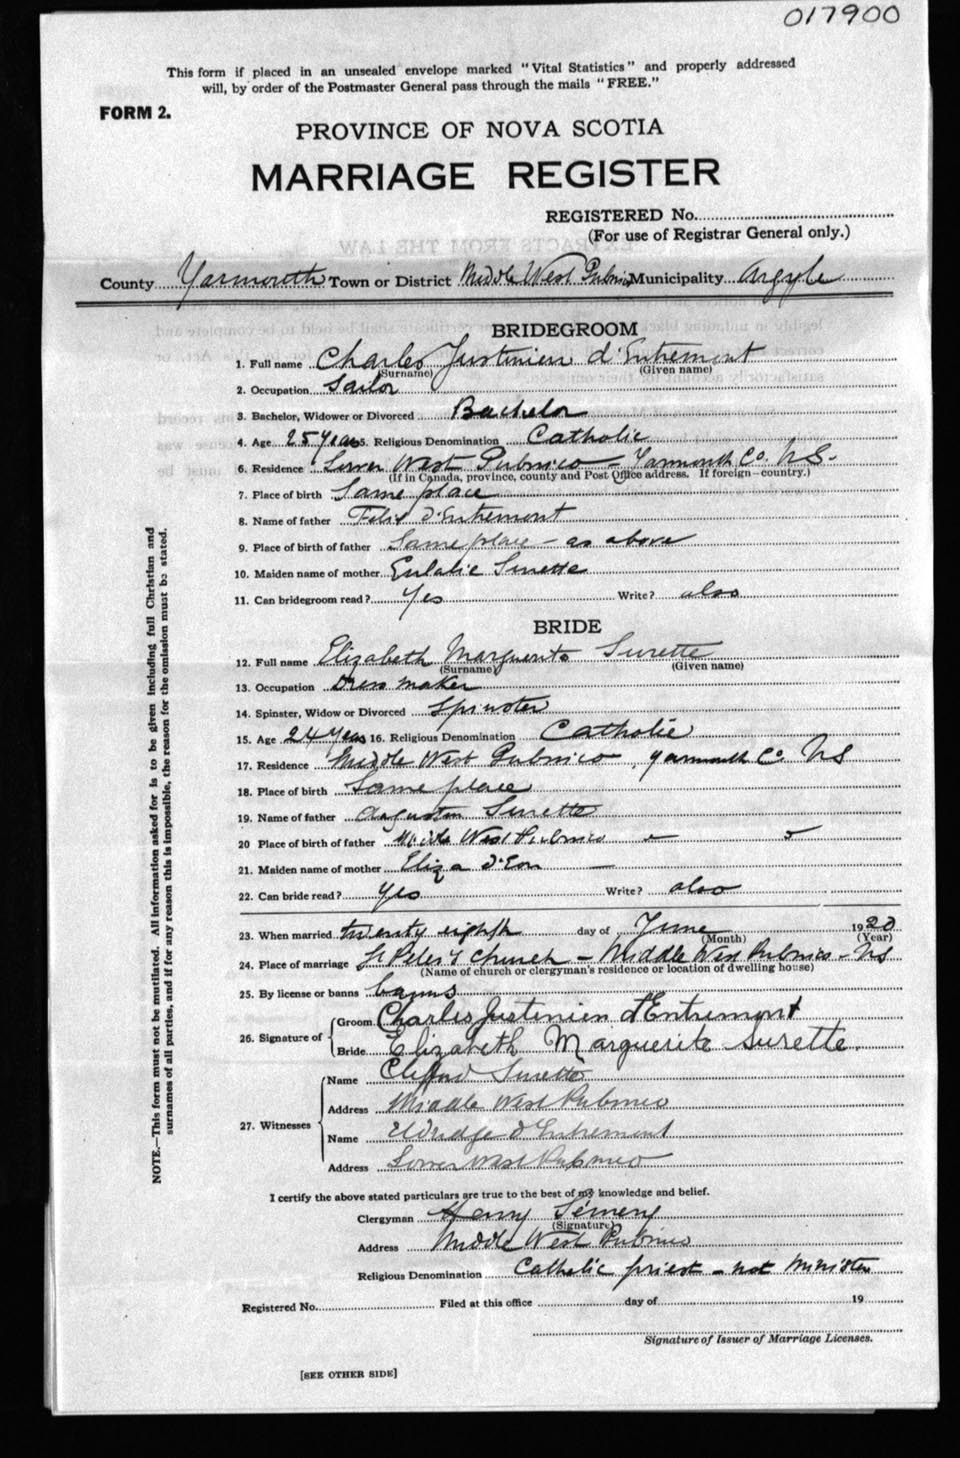 017900
This form if placed in an unsealed envelope marked "Vital Statistics" and properly addressed
will, by order of the Postmaster General pass through the mails "FREE."
FORM 2.
PROVINCE OF NOVA SCOTIA
MARRIAGE REGISTER
REGISTERED No.
(For use of Registrar General only.)
County Yarmouth Town or District Middle West Pubnico Municipality Argyle
BRIDEGROOM
1. Full name Charles Justinien d'Entremont
(Surname) (Given name)
2. Occupation Sailor
3. Bachelor, Widower or Divorced Bachelor
4. Age 25 Years 5. Religious Denomination Catholic
6. Residence Lower West Pubnico - Yarmouth Co. N.S.
(If in Canada, province, county and Post Office address. If foreign—country.)
7. Place of birth Same place
8. Name of father d'Entremont
9. Place of birth of father Same place - as above
10. Maiden name of mother Eulalie Surette
11. Can bridegroom read? Yes Write? also
BRIDE
12. Full name Elizabeth Marguerite Surette
(Surname) (Given name)
13. Occupation Dress maker
14. Spinster, Widow or Divorced Spinster
15. Age 24 Years 16. Religious Denomination Catholic
17. Residence Middle West Pubnico, Yarmouth Co. NS
18. Place of birth Same place
19. Name of father Augustin Surette
20 Place of birth of father Middle West Pubnico
21. Maiden name of mother Eliza d'Eon
22. Can bride read? Yes Write? also
23. When married twenty eighth day of June 1920
(Month) (Year)
24. Place of marriage St Peter's Church - Middle West Pubnico - NS
(Name of church or clergyman's residence or location of dwelling house)
25. By license or banns banns
26. Signature of Groom Charles Justinien d'Entremont
Bride Elizabeth Marguerite Surette.
27. Witnesses Name Clifford Surette
Address Middle West Pubnico
Name d'Entremont
Address Lower West Pubnico
I certify the above stated particulars are true to the best of my knowledge and belief.
Clergyman Henry
(Signature)
Address Middle West Pubnico
Religious Denomination Catholic priest - not Minister
Registered No. Filed at this office day of 19
Signature of Issuer of Marriage Licenses.
[SEE OTHER SIDE]
NOTE.—This form must not be mutilated. All information asked for is to be given including full Christian and
surnames of all parties, and if for any reason this is impossible, the reason for the omission must be stated.